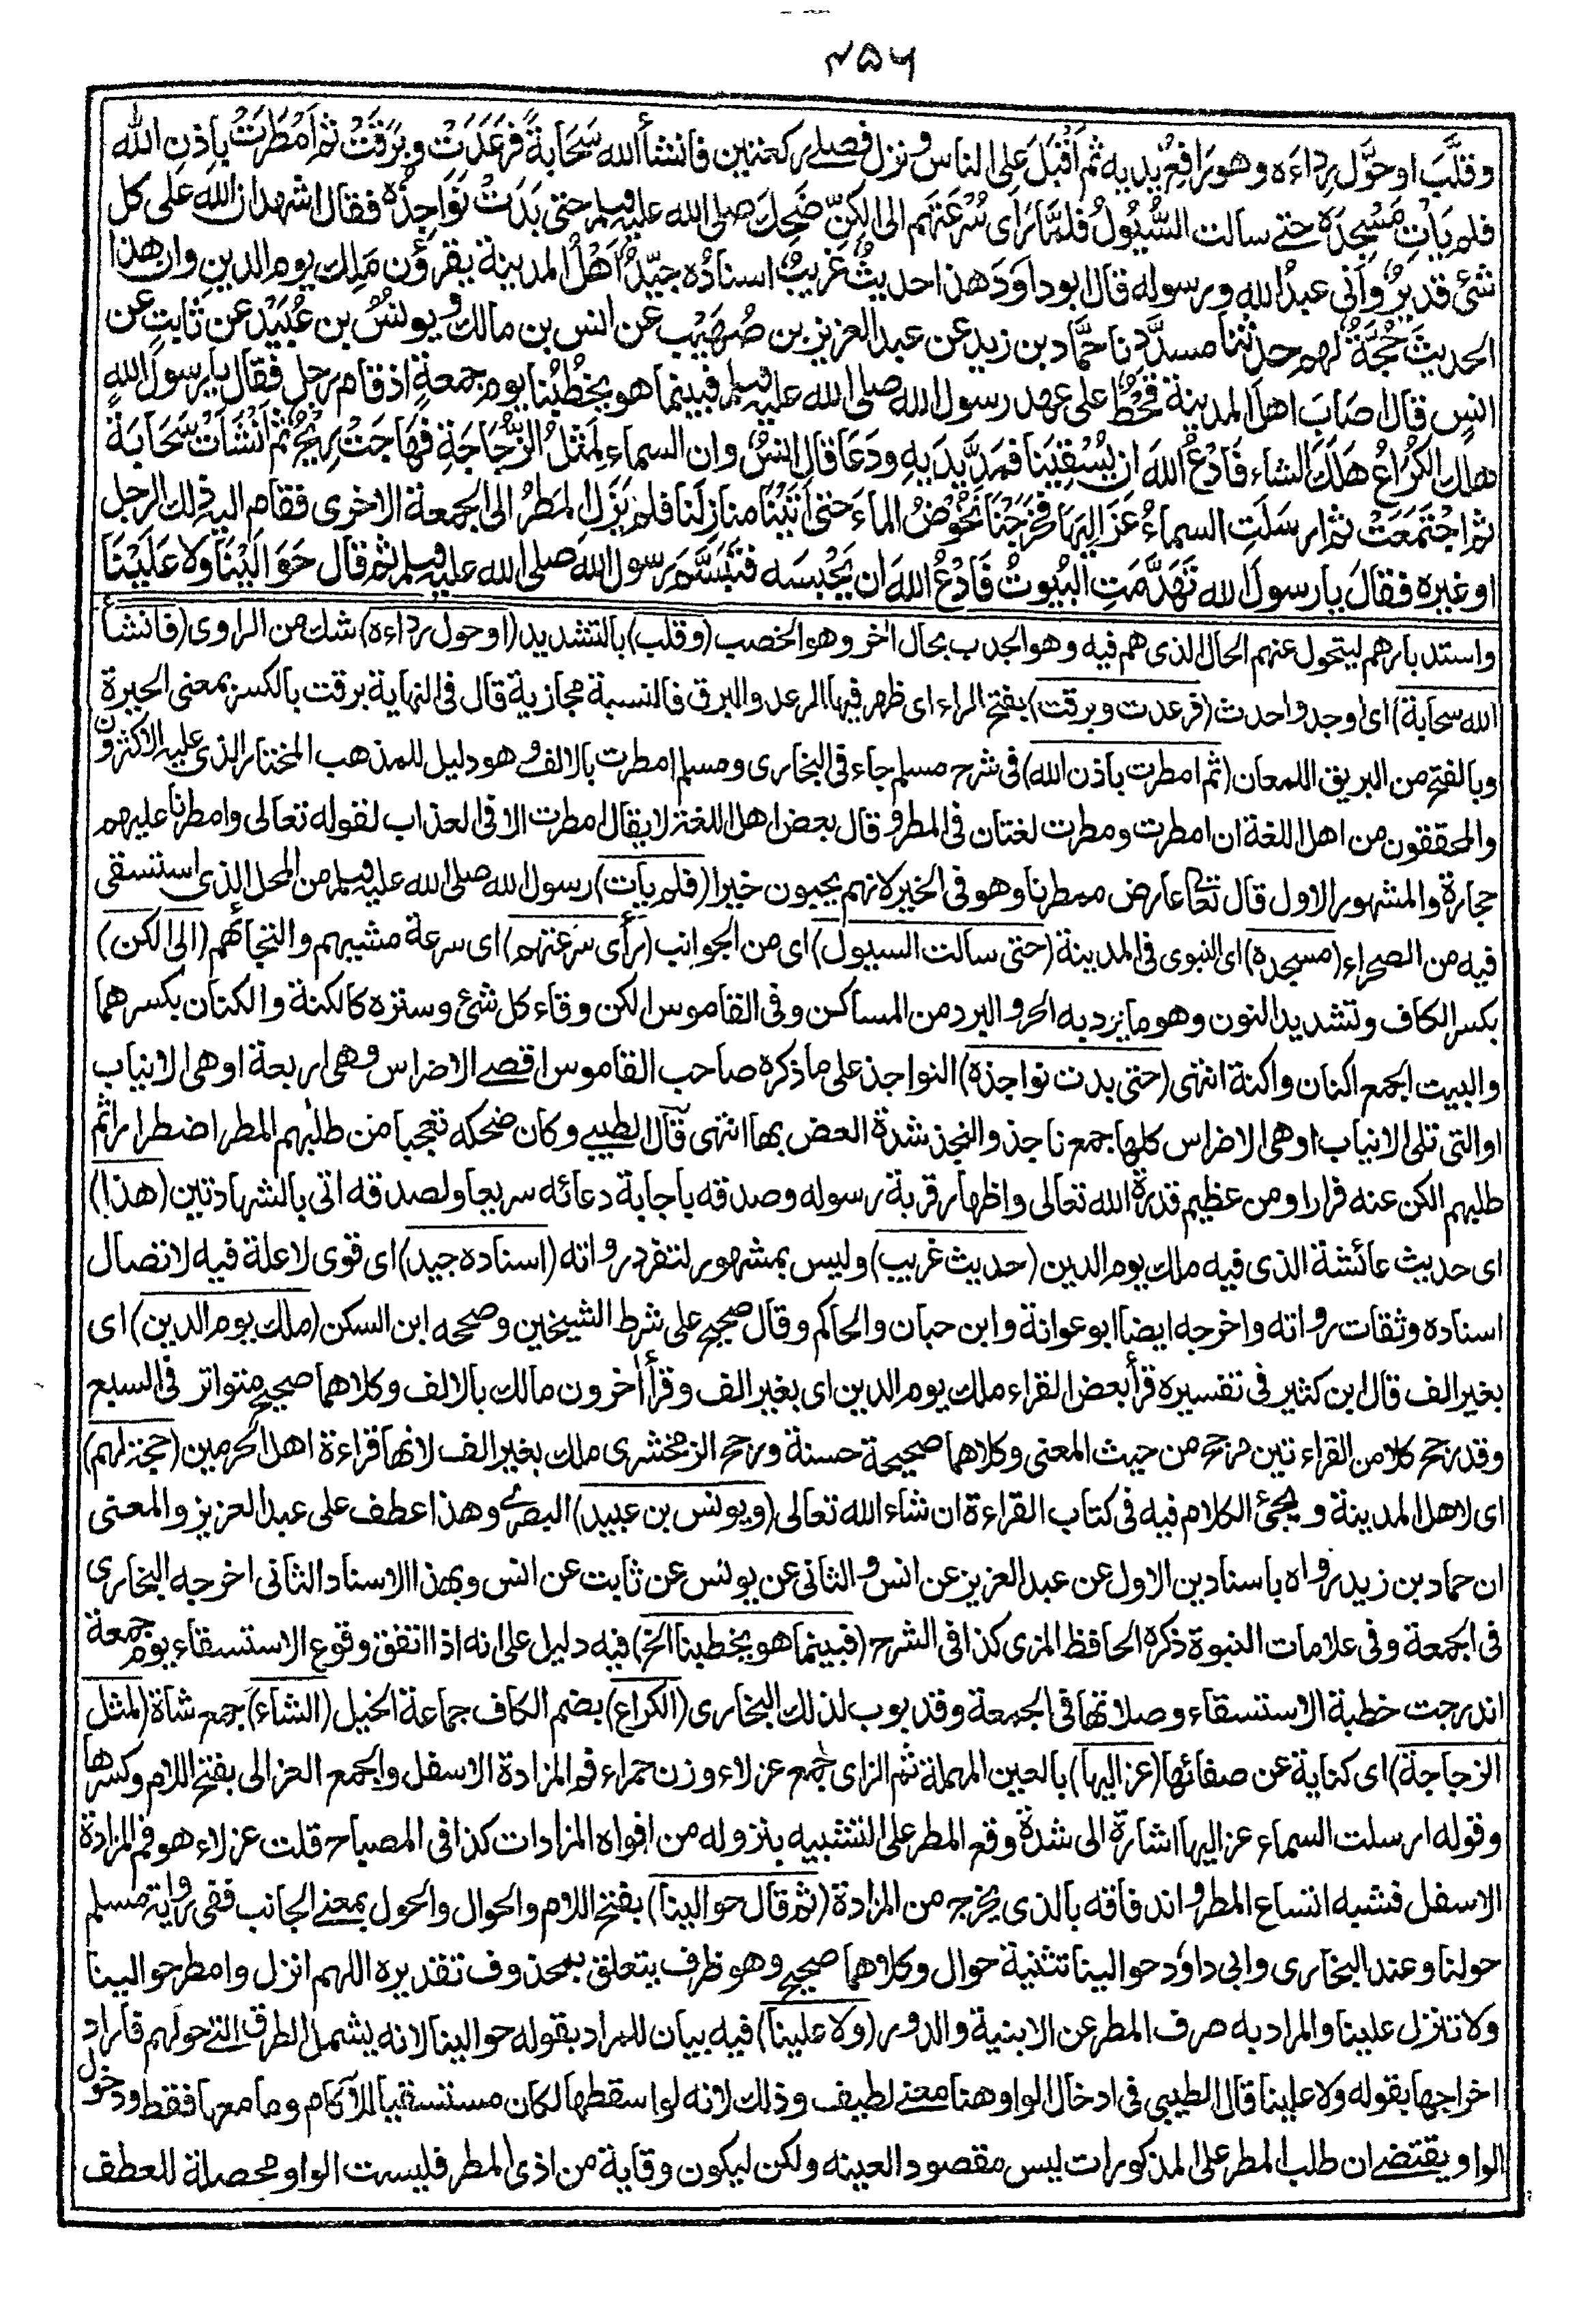 ۴۵۶
وقَلَّبَ او حَوَّل رِداءَه وهو رَافِعٌ يديه ثم اَقْبَلَ على الناس ونزل فصلے ركعتين فانشأ الله سَحَابَةً فَرَعَدَتْ وبَرَقَتْ ثم اَمْطَرَتْ باذن الله
فلم يَأتِ مَسْجِدَه حتے سالت السُّيُولُ فلمَّا رَاَى سُرْعَتَهم الى الكِنِّ ضَحِكَ صلى الله عليه وسلم حتى بَدَتْ نَوَاجِذُه فقال اشهد ان الله على كل
شئ قدير وَاَنّى عبدُ الله ورسوله قال ابو داوَد هذا حديثٌ غريبٌ اسنادُه جيّدٌ اَهْلُ المدينة يقرؤن مَلِكِ يوم الدين وان هذا
الحديثَ حُجَّةٌ لهم حدثنا مسدَّد نا حَمَّاد بن زيد عن عبد العزيز بن صُهَيْب عن انس بن مالك ويونسُ بن عُبَيْد عن ثابتٍ عن
انسٍ قال اصَابَ اهلَ المدينة قَحْطٌ على عهد رسول الله صلى الله عليه وسلم فبينما هو يخطُبُنا يوم جمعةٍ اذ قام رجل فقال يا رسولَ الله
هلك الكُرَاعُ هَلَكَ الشاء فَادْعُ اللهَ ان يُسْقِيَنَا فمَدَّ يَدَيهِ ودَعَا قال انسٌ وان السماء لَمِثْلُ الزُّجَاجَةِ فهَاجَتْ رِيْحٌ ثم اَنْشَاَتْ سَحَابَةً
ثم اجْتَمَعَتْ ثم ارسَلَتِ السماءُ عَزَالِيَهَا فخَرَجْنَا نَخُوْضُ الماءَ حتى اَتَيْنَا منازِلَنَا فلم يَزَلِ المطرُ الى الجمعة الاخرى فقام اليه ذلك الرجل
او غيره فقالَ يا رسولَ الله تَهَدَّمَتِ البُيوتُ فَادْعُ اللهَ ان يَحْبِسَه فتَبَسَّم رسول الله صلى الله عليه وسلم ثم قال حَوَالَيْنَا ولا عَلَيْنَا
واستدبارهم ليتحول عنهم الحال الذى هم فيه وهو الجدب بحال اٰخر وهو الخصب (وقلب) بالتشديد (او حول رداءه) شك من الراوى (فانشأ
الله سحابة) اى اوجد واحدث (فرعدت وبرقت) بفتح الراء اى ظهر فيها الرعد والبرق فالنسبة مجازية قال فى النهاية برقت بالكسر بمعنى الحيرة
وبالفتح من البريق اللمعان (ثم امطرت باذن الله) فى شرح مسلم جاء فى البخارى ومسلم امطرت بالالف وهو دليل للمذهب المختار الذى عليه الاكثرون
والمحققون من اهل اللغة ان امطرت ومطرت لغتان فى المطر وقال بعض اهل اللغة لا يقال امطرت الا فى العذاب لقوله تعالى وامطرنا عليهم
حجارة والمشهور الاول قال تعالى عارض ممطرنا وهو فى الخير لانهم يحبون خيرا (فلم يات) رسول الله صلى الله عليه وسلم من المحل الذى استسقى
فيه من الصحراء (مسجده) اى النبوى فى المدينة (حتى سالت السيول) اى من الجوانب (رأى سرعتهم) اى سرعة مشيهم والتجائهم (الى الكن)
بكسر الكاف وتشديد النون وهو ما يرد به الحر والبرد من المساكن وفى القاموس الكن وقاء كل شئ وستره كالكنة والكنان بكسرهما
والبيت الجمع اكنان واكنة انتهى (حتى بدت نواجذه) النواجذ على ما ذكره صاحب القاموس اقصے الاضراس وهى اربعة او هى الانياب
او التى تلى الانياب او هى الاضراس كلها جمع ناجذ والنجذ شدة العض بها انتهى قال الطيبے وكان ضحكه تعجبا من طلبهم المطر اضطرارا ثم
طلبهم الكن عنه فرارا ومن عظيم قدرة الله تعالى واظهار قربة رسوله وصدقه باجابة دعائه سريعا ولصدقه اتى بالشهادتين (هذا)
اى حديث عائشة الذى فيه ملك يوم الدين (حديث غريب) وليس بمشهور لتفرد رواته (اسناده جيد) اى قوى لا علة فيه لاتصال
اسناده وثقات رواته واخرجه ايضا ابو عوانة وابن حبان والحاكم وقال صحيح على شرط الشيخين وصححه ابن السكن (ملك يوم الدين) اى
بغير الف قال ابن كثير فى تفسيره قرأ بعض القراء ملك يوم الدين اى بغير الف وقرأ اٰخرون مالك بالالف وكلاهما صحيح متواتر فى السبع
وقد رجح كلا من القراءتين مرجح من حيث المعنى وكلاهما صحيحة حسنة ورجح الزمخشرى ملك بغير الف لانها قراءة اهل الحرمين (حجة لهم)
اى لاهل المدينة ويجئ الكلام فيه فى كتاب القراءة ان شاء الله تعالى (ويونس بن عبيد) البصرے وهذا عطف على عبد العزيز والمعنى
ان حماد بن زيد رواه باسنادين الاول عن عبد العزيز عن انس والثانى عن يونس عن ثابت عن انس وبهذا الاسناد الثانى اخرجه البخارى
فى الجمعة وفى علامات النبوة ذكره الحافظ المزى كذا فى الشرح (فبينما هو يخطبنا الخ) فيه دليل على انه اذا اتفق وقوع الاستسقاء يوم جمعة
اندرجت خطبة الاستسقاء وصلاتها فى الجمعة وقد بوب لذلك البخارى (الكراع) بضم الكاف جماعة الخيل (الشاء) جمع شاة (لمثل
الزجاجة) اى كناية عن صفائها (عزاليها) بالعين المهملة ثم الزاى جمع عزلاء وزن حمراء فم المزادة الاسفل والجمع العزالى بفتح اللام وكسرها
وقوله ارسلت السماء عزاليها اشارة الى شدة وقع المطر على التشبيه بنزوله من افواه المزادات كذا فى المصباح قلت عزلاء هو فم المزادة
الاسفل فشبه اتساع المطر واندفاقه بالذى يخرج من المزادة (ثم قال حوالينا) بفتح اللام والحوال والحول بمعنے الجانب ففى رواية مسلم
حولنا وعند البخارى وابى داوٗد حوالينا تثنية حوال وكلاهما صحيح وهو ظرف يتعلق بمحذوف تقديره اللهم انزل وامطر حوالينا
ولا تنزل علينا والمراد به صرف المطر عن الابنية والدور (ولا علينا) فيه بيان للمراد بقوله حوالينا لانه يشمل الطرق التے حولهم فاراد
اخراجها بقوله ولا علينا قال الطيبي فى ادخال الواو وهنا معنے لطيف وذلك لانه لو اسقطها لكان مستسقيا للآكام وما معها فقط ودخول
الواو يقتضے ان طلب المطر على المذكورات ليس مقصود العينه ولكن ليكون وقاية من اذى المطر فليست الواو محصلة للعطف